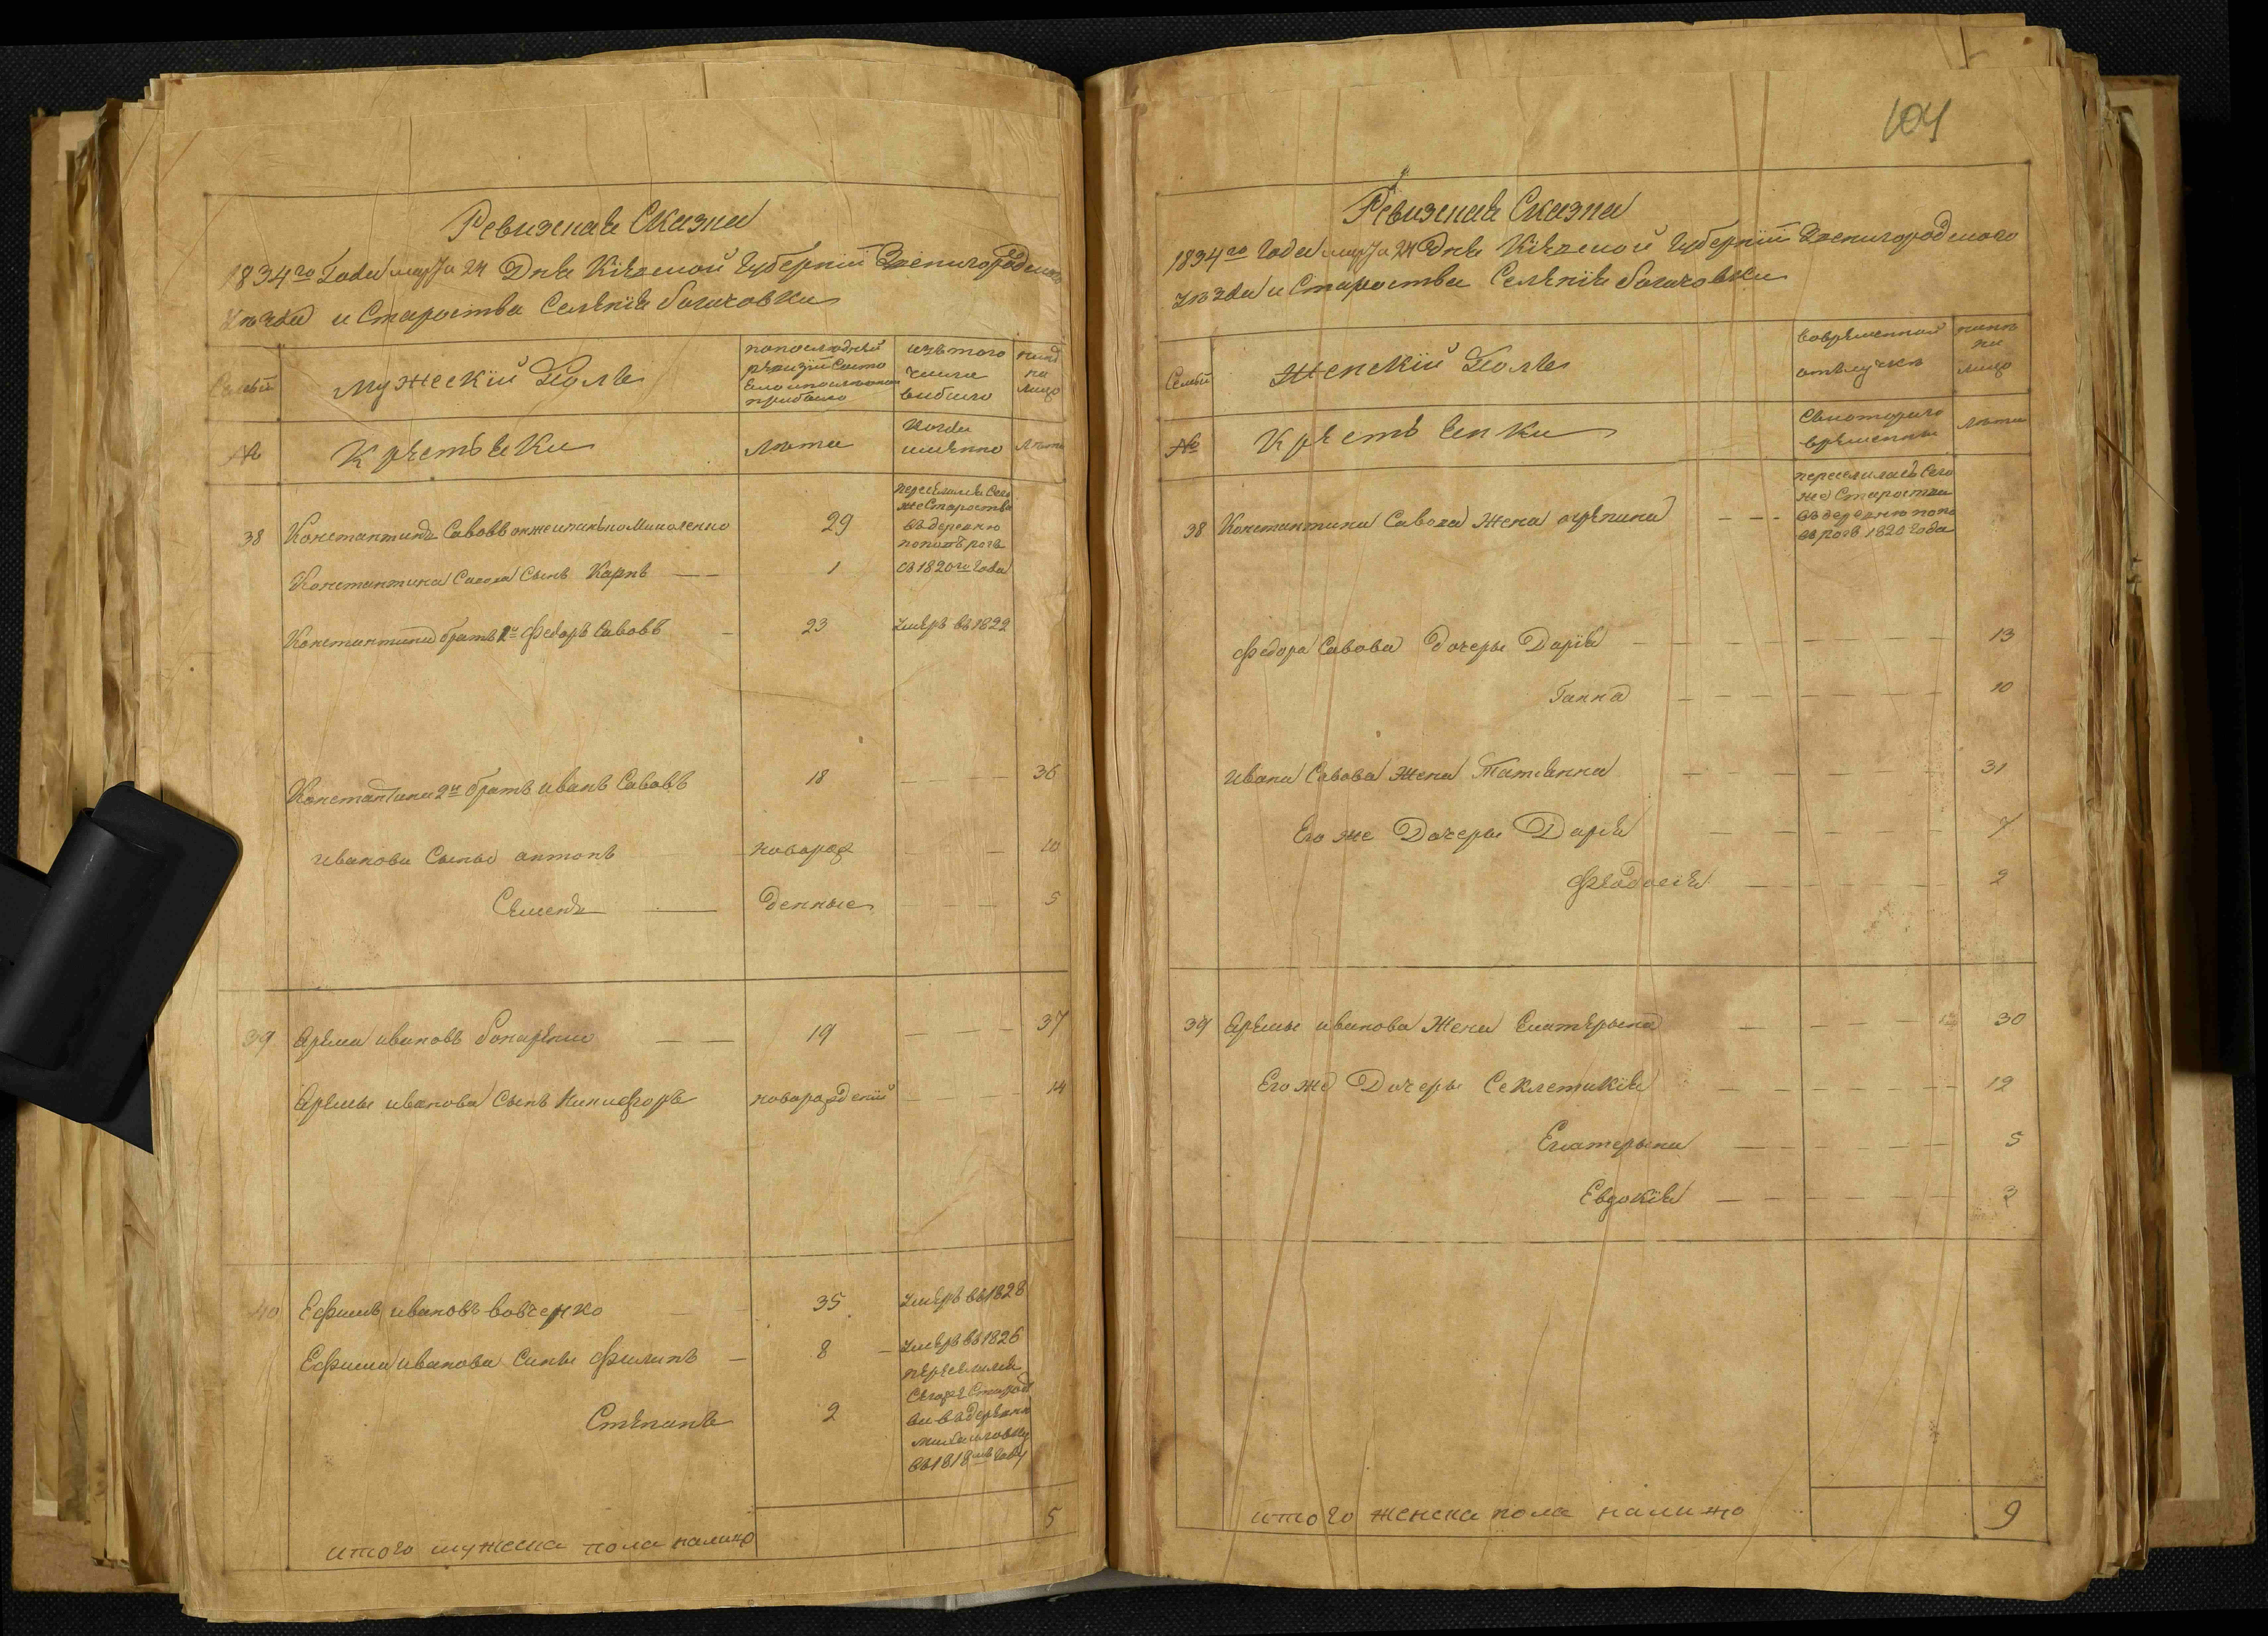 Ревизская Сказка
1834го Года марта 24 Дня Кіевской Губерніи Звенигородского
уѣзда и Староства Селенія богачовки
Семьи
мужескій Полъ
по последней
ревизіи Состо
яло и после оной
прибыло
изъ того
числа
выбыло
нынѣ
на
лицо
№
Крестьяки
лѣта
Когда
именно
лѣта
38 Константинъ Савовъ онже 29
переселился Сего
же Староства
въ деревню
Константина Савова Сынъ Карпъ 1
съ 1820го Года
Константина братъ 1й Федоръ Савовъ 23 умеръ въ 1822
Константина 2й братъ иванъ Савовъ 18 36
иванова Сыны антонъ новорож 10
Семенъ денные 5
39 Ярема ивановъ бондаренко 19 37
Яремы иванова Сынъ Никифоръ новорожденій 14
40 Ефимъ ивановъ вовченко 35 умеръ въ 1828
Ефима иванова Сины Филипъ 8 умеръ въ 1826
переселился
Сегоже Старост
Степанъ 2
ва въ деревню
михайловку
въ 1818мъ Году
итого мужска пола налицо 5
104
Ревизская Сказка
1834го Года марта 24 Дня Кіевской Губерніи Звенигородского
уѣзда и Староства Селенія богачовки
Семьи
Женскій Полъ
во временной
отлучкѣ
нынѣ
на
лицо
№
Крестьянки
С которого
времени
лѣта
38 Константина Савова Жена
переселилась Сего
же Староства
въ деревню попо
въ рогъ 1820 Года
Федора Савова Дочеры Дарія 13
Ганна 10
ивана Савова Жена Татіанна 31
Его же Дочеры Дарія 7
Феодосія 2
39 Яремы иванова Жена Екатерына 30
Его же Дочеры Секлетикія 12
Екатерына 5
Евдокія 3
итого женска пола налицо 9